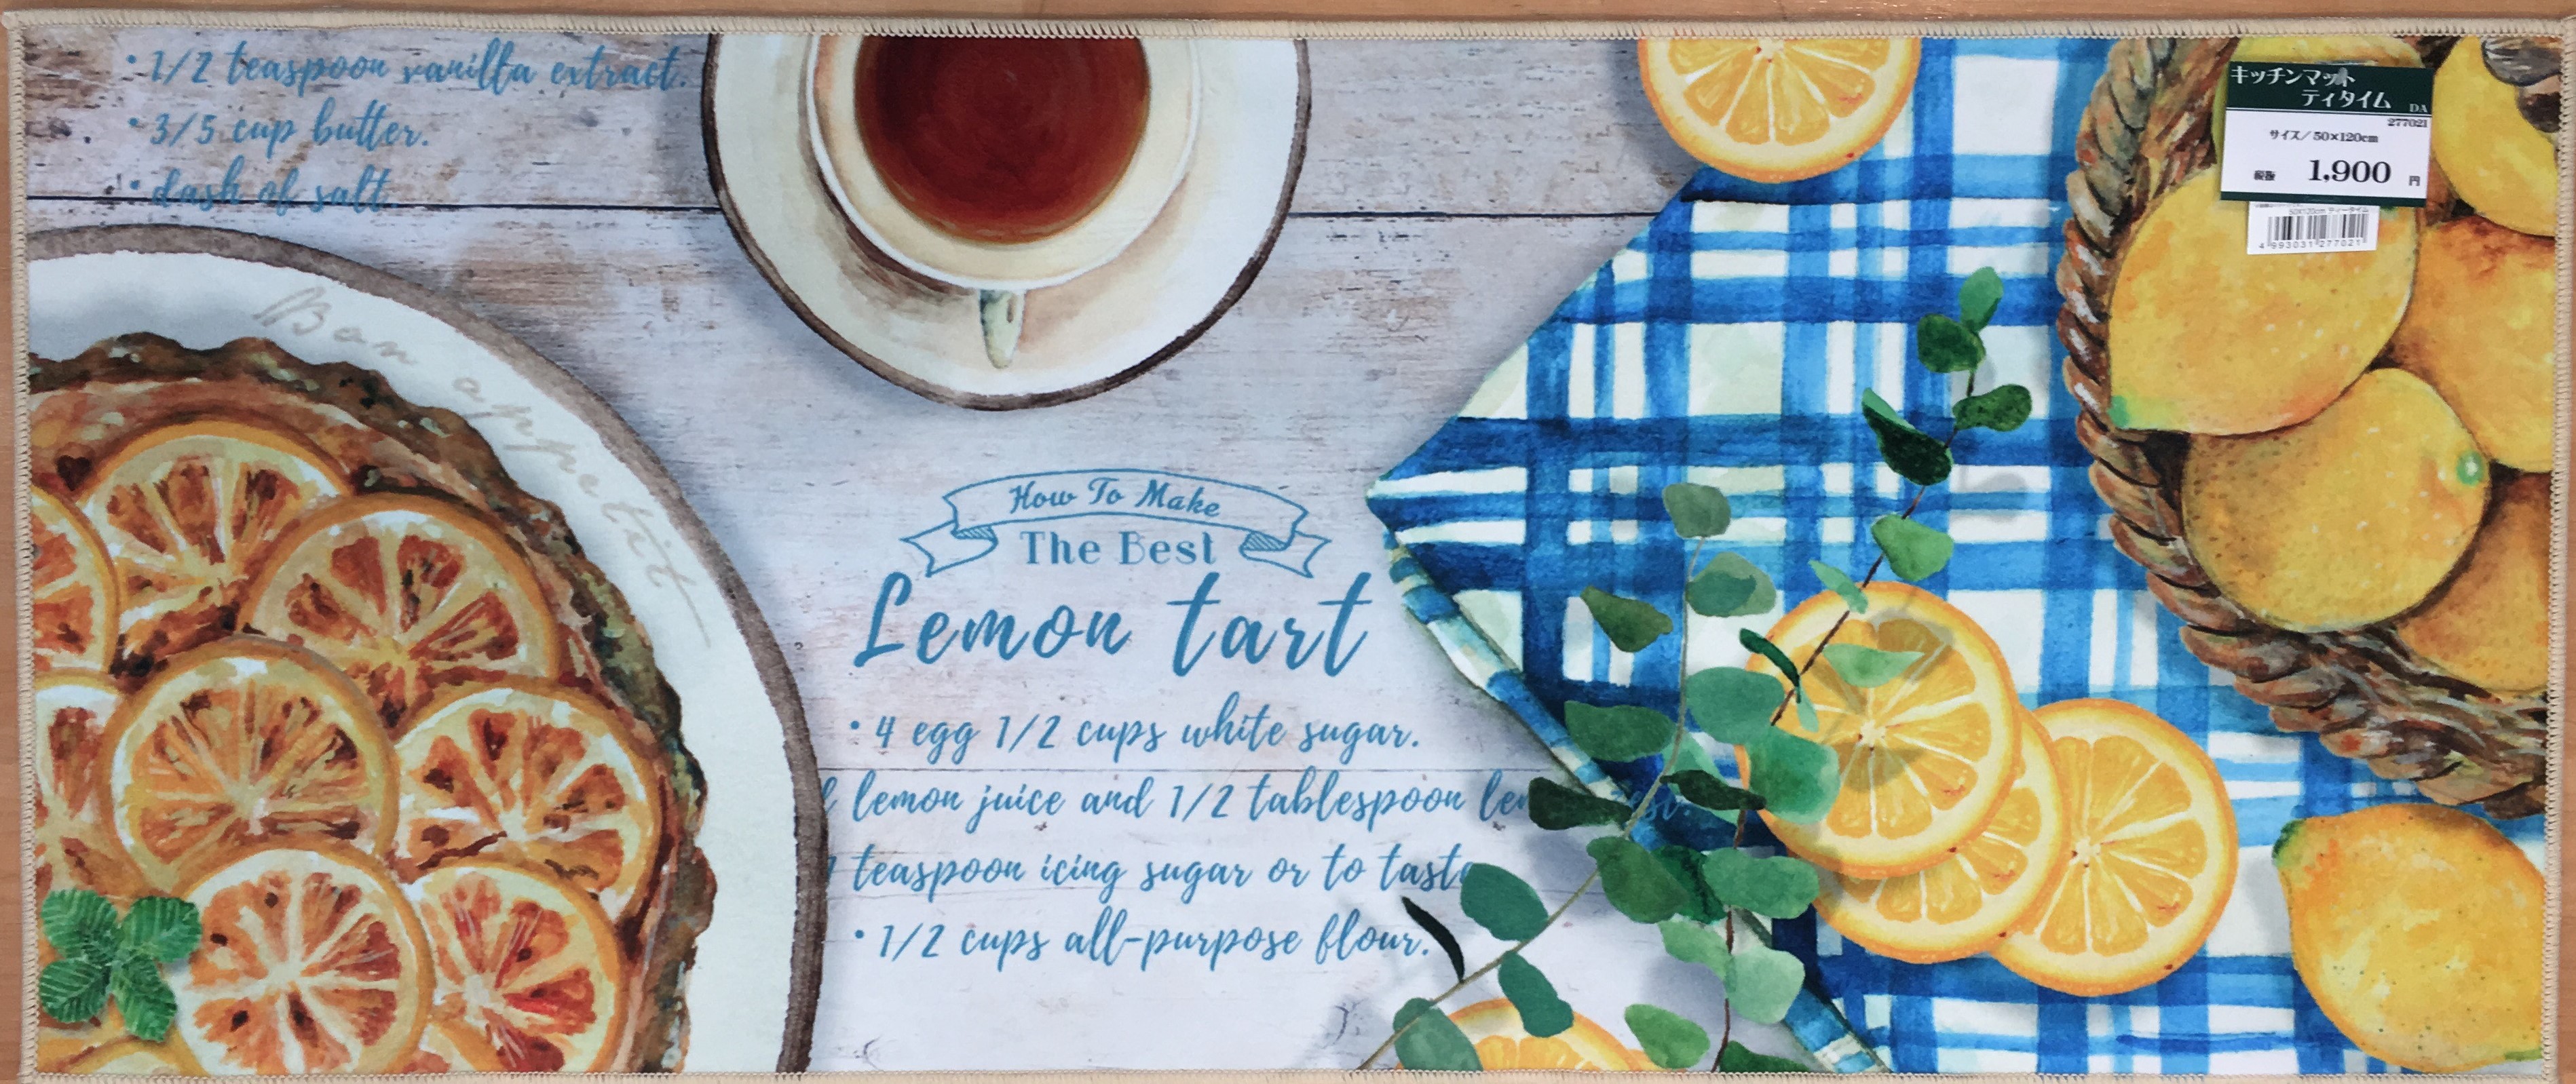 • 1/2 teaspoon vanilla extract.
• 3/5 cup butter.
• dash of salt.
Bon appetit
How To Make
The Best
Lemon tart
• 4 egg 1/2 cups white sugar.
lemon juice and 1/2 tablespoon
teaspoon icing sugar or to taste
• 1/2 cups all-purpose flour.
キッチンマット
ティタイム DA
277021
サイズ/50×120cm
税抜 1,900 円
50X120cm ティータイム
4 993031 277021